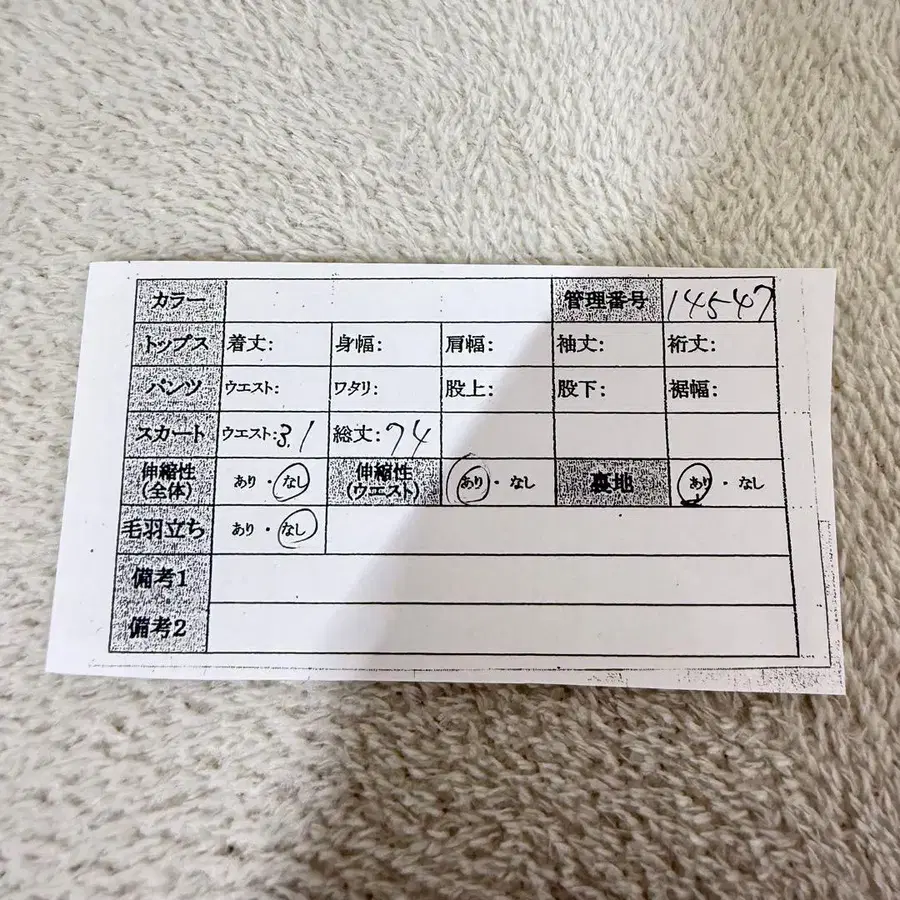 カラー 管理番号 14547
トップス 着丈: 身幅: 肩幅: 袖丈: 裄丈:
パンツ ウエスト: ワタリ: 股上: 股下: 裾幅:
スカート ウエスト:31 総丈:74
伸縮性(全体) あり・なし 伸縮性(ウエスト) あり・なし 裏地 あり・なし
毛羽立ち あり・なし
備考1
備考2